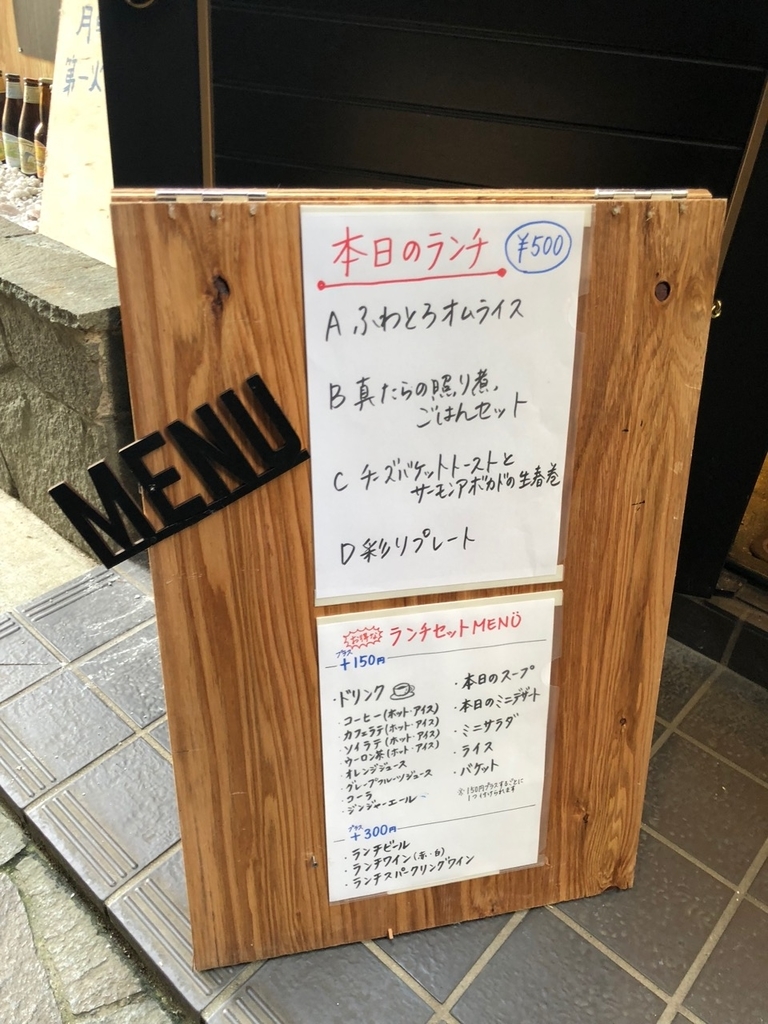 月
第一火
本日のランチ ¥500
A ふわとろオムライス
B 真たらの照り煮、
ごはんセット
C チーズバケットトーストと
サーモンアボカドの生春巻
D 彩りプレート
MENU
お得な ランチセットMENU
プラス
+150円
・ドリンク
・コーヒー(ホット・アイス)
・カフェラテ(ホット・アイス)
・ソイラテ(ホット・アイス)
・ウーロン茶(ホット・アイス)
・オレンジジュース
・グレープフルーツジュース
・コーラ
・ジンジャーエール
・本日のスープ
・本日のミニデザート
・ミニサラダ
・ライス
・バケット
※150円プラスするごとに
1つ付けられます
プラス
+300円
・ランチビール
・ランチワイン(赤・白)
・ランチスパークリングワイン